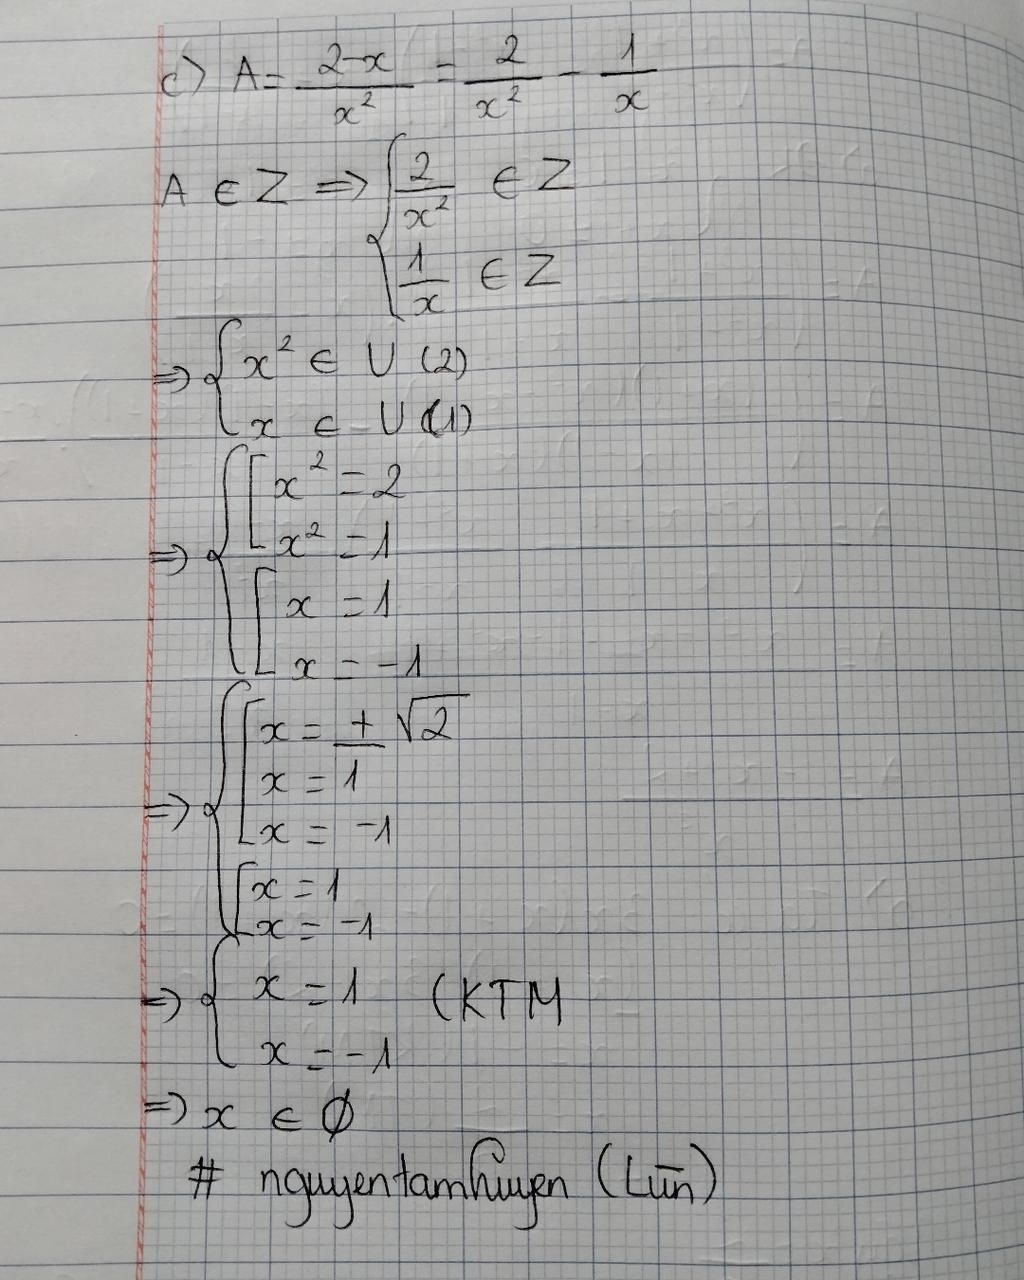 c) A = \frac{2-x}{x^2} = \frac{2}{x^2} - \frac{1}{x}
A ∈ Z ⇒ { \frac{2}{x^2} ∈ Z
\frac{1}{x} ∈ Z
⇒ { x² ∈ U (2)
x ∈ U (1)
⇒ { [ x² = 2
x² = 1
[ x = 1
x = -1
⇒ { [ x = ± √2
x = 1
x = -1
[ x = 1
x = -1
⇒ { x = 1 (KTM
x = -1
⇒ x ∈ ∅
# nguyentamhuyen (Lùn)